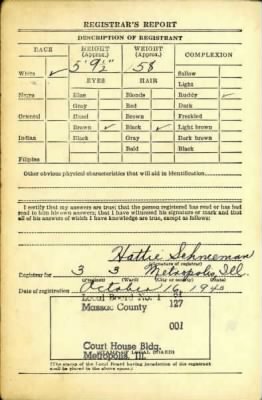 REGISTRAR'S REPORT
DESCRIPTION OF REGISTRANT
RACE HEIGHT (Approx.) WEIGHT (Approx.) COMPLEXION
5' 9½" 158
White ✓ Sallow
EYES HAIR Light
Negro Blue Blonde Ruddy ✓
Gray Red Dark
Oriental Hazel Brown Freckled
Brown ✓ Black ✓ Light brown
Indian Black Gray Dark brown
Bald Black
Filipino
Other obvious physical characteristics that will aid in identification
I certify that my answers are true; that the person registered has read or has had
read to him his own answers; that I have witnessed his signature or mark and that
all of his answers of which I have knowledge are true, except as follows:
Hattie Schneeman
(Signature of registrar)
Registrar for 3 3 Metropolis, Ill.
(Precinct) (Ward) (City or county) (State)
Date of registration October 16, 1940
Local Board No. 1 51
Massac County 127
001
Court House Bldg.
Metropolis, Ill.
(STAMP OF LOCAL BOARD)
(The stamp of the Local Board having jurisdiction of the registrant
shall be placed in the above space.)